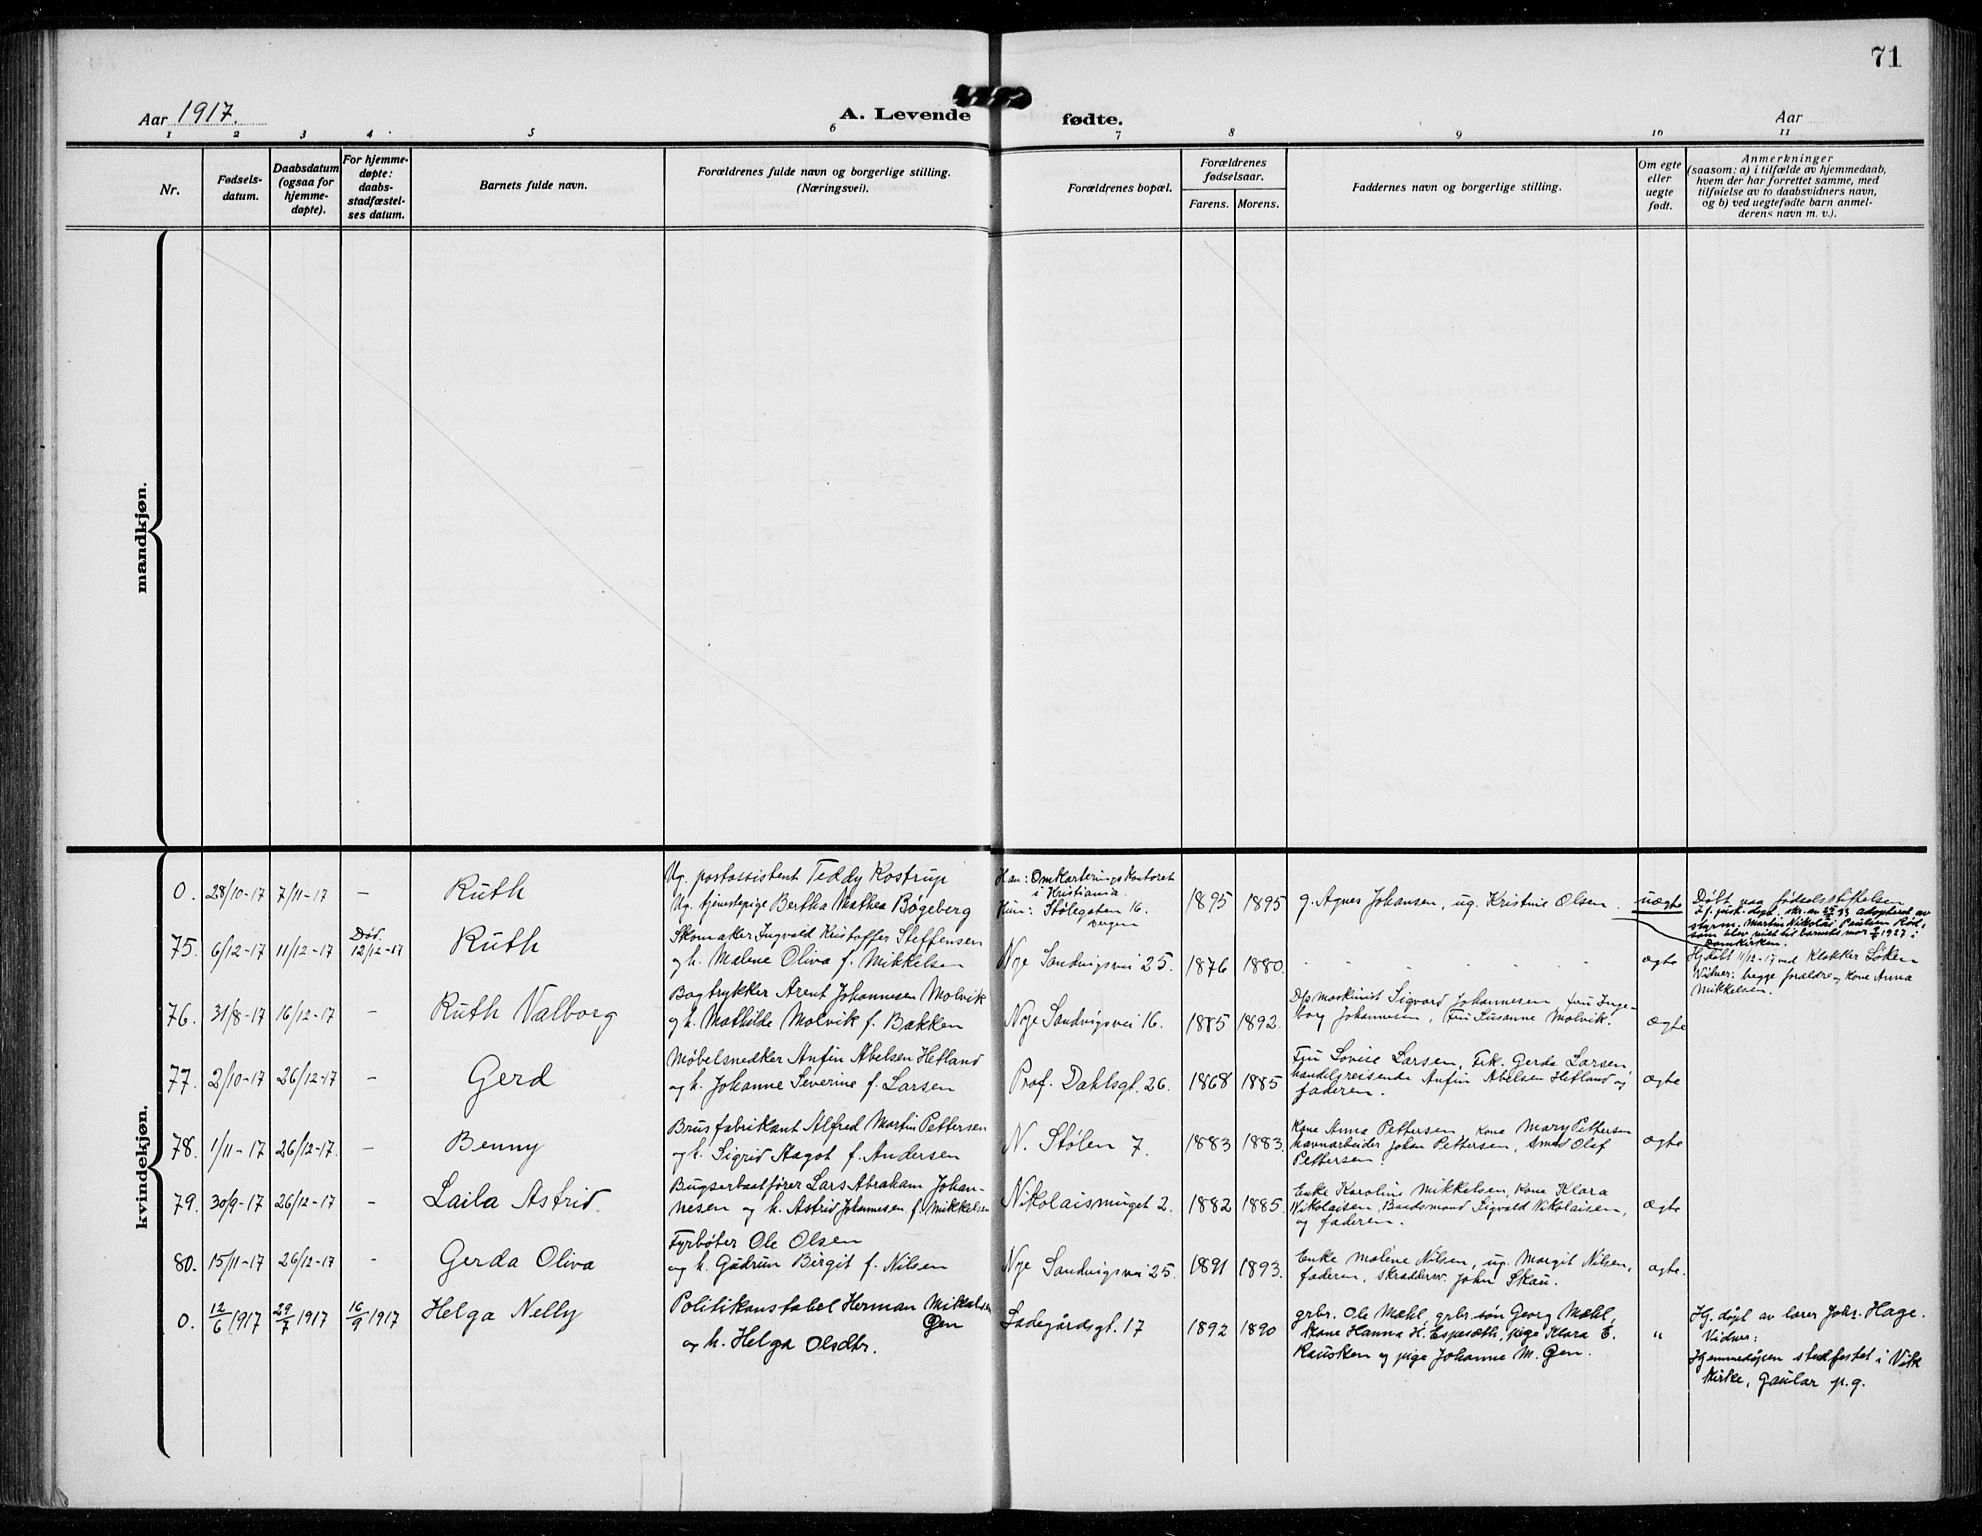 71
Aar 1917.
A. Levende fødte.
Aar
1 2 3 4 5 6 7 8 9 10 11
Nr.
Fødsels-
datum.
Daabsdatum
(ogsaa for
hjemme-
døpte).
For hjemme-
døpte:
daabs-
stadfæstel-
ses datum.
Barnets fulde navn.
Forældrenes fulde navn og borgerlige stilling.
(Næringsvei).
Forældrenes bopæl.
Forældrenes
fødselsaar.
Farens. Morens.
Faddernes navn og borgerlige stilling.
Om egte
eller
uegte
født.
Anmerkninger
(saasom: a) i tilfælde av hjemmedaab,
hvem der har forrettet samme, med
tilføielse av to daabsvidners navn,
og b) ved uegtefødte barn anmel-
derens navn m. v.).
mandkjøn.
kvindekjøn.
0. 28/10-17 7/11-17 — Ruth
Ug. postassistent Teddy Kostrup
Ug. tjenestepige Bertha Mathea Bøgeberg
Han: Omkarteringskontoret
i Kristiania.
Hun: Stølegaten 16.
Bergen
1895 1895
g. Agnes Johansen, ug. Kristine Olsen.
uægte
Døbt paa fødselsstiftelsen
If. just. dept. skr. av adopteret av
styrm. Martin Nikolai Paulsen Rød,
som blev viet til barnets mor 1927 i
Domkirken.
75. 6/12-17 11/12-17 Død 12/12-17 Ruth
Skomaker Ingvald Kristoffer Steffensen
og h. Malene Oliva f. Mikkelsen
Nye Sandvigsvei 25. 1876 1880.
ægte
Hj. døbt 11/12-17 ved Klokker Søken
Vidner: begge forældre og kone Anna
Mikkelsen.
76. 31/8-17 16/12-17 - Ruth Valborg
Bogtrykker Arent Johannesen Molvik
og h. Mathilde Molvik f. Bakken
Nye Sandvigsvei 16. 1885 1892.
D/s maskinist Sigvard Johannesen, fru Inge-
borg Johannesen, Fru Susanne Molvik.
ægte
77. 2/10-17 26/12-17 - Gerd
Møbelsnedker Anfin Abelsen Hetland
og h. Johanne Severine f. Larsen
Prof. Dahlsgt. 26. 1868 1885
Fru Lovise Larsen, Frk. Gerda Larsen,
handelsreisende Anfin Abelsen Hetland og
faderen.
ægte
78. 1/11-17 26/12-17. - Benny
Brusfabrikant Alfred Martin Pettersen
og h. Sigrid Aagot f. Andersen
N. Stølen 7. 1883 1883.
Kone Anna Pettersen, kone Mary Pettersen
havnarbeider Johan Pettersen, smed Olef
Pettersen.
ægte
79. 30/9-17 26/12-17 - Laila Astrid.
Bugserbaatfører Lars Abraham Johan-
nesen og h. Astrid Johannesen f. Mikkelsen
Nikolaismuget 2. 1882 1885.
Enke Karoline Mikkelsen, kone Klara
Nikolaisen, Baadsmand Sigvald Nikolaisen,
og faderen.
ægte
80. 15/11-17 26/12-17 - Gerda Oliva
Fyrbøter Ole Olsen
og h. Gudrun Birgit f. Nilsen
Nye Sandvigsvei 25. 1891 1893.
Enke Malene Nilsen, ug. Margit Nilsen,
faderen, skrædderm. John Skau.
ægte.
0. 12/6 1917 29/7 1917 16/9 1917 Helga Nelly
Politikonstabel Herman Mikalsen
Øen
og h. Helga Olsdtr.
Ladegårdsgt. 17 1892 1890
grbr. Ole Mæhl, grbr.søn Georg Mæhl,
Kone Hanna H. Espesæth, pige Klara E.
Kausken og pige Johanne M. Øen.
"
Hj. døpt av lærer Johs. Hage.
Vidner:
Hjemmedåpen stadfestet i Vik
kirke, Gaular p.g.